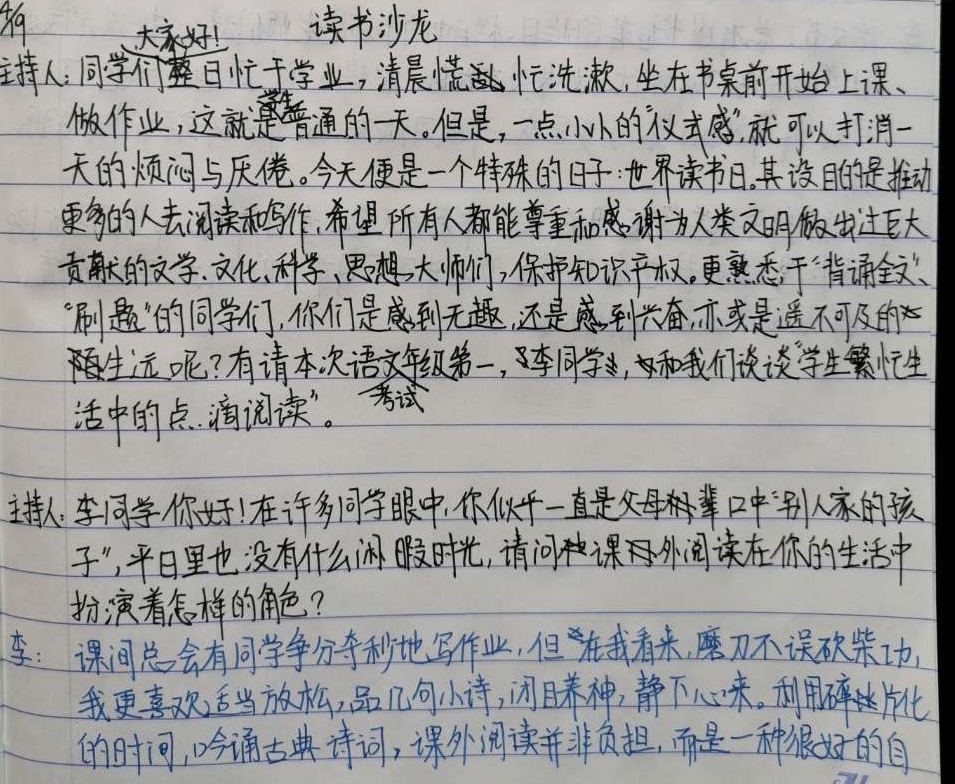 4/9 读书沙龙
大家好!
主持人:同学们整日忙于学业,清晨慌忙洗漱,坐在书桌前开始上课、
做作业,这就是学生普通的一天。但是,一点小小的“仪式感”,就可以打消一
天的烦闷与厌倦。今天便是一个特殊的日子:世界读书日。其设目的是推动
更多的人去阅读和写作,希望所有人都能尊重和感谢为人类文明做出过巨大
贡献的文学、文化、科学、思想大师们,保护知识产权。更熟悉于“背诵全文”、
“刷题”的同学们,你们是感到无趣,还是感到兴奋,亦或是遥不可及的
陌生远呢?有请本次语文年级第一,李同学,和我们谈谈“学生繁忙生
考试
活中的点滴阅读”。
主持人:李同学你好!在许多同学眼中,你似乎一直是父母辈口中“别人家的孩
子”,平日里也没有什么闲暇时光,请问课外阅读在你的生活中
扮演着怎样的角色?
李:课间总会有同学争分夺秒地写作业,但在我看来,磨刀不误砍柴功,
我更喜欢适当放松,品几句小诗,闭目养神,静下心来。利用碎片化
的时间,吟诵古典诗词,课外阅读并非负担,而是一种很好的自